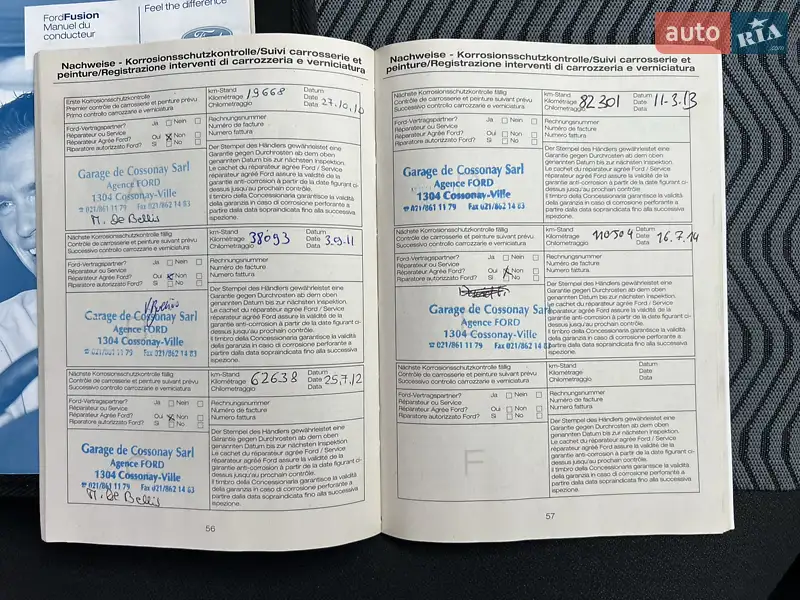 FordFusion
Manuel du
conducteur
Feel the difference
Ford
auto RIA
Nachweise - Korrosionsschutzkontrolle/Suivi carrosserie et
peinture/Registrazione interventi di carrozzeria e verniciatura
Erste Korrosionsschutzkontrolle
Premier contrôle de carrosserie et peinture prévu
Primo controllo carrozzeria e verniciatura
km-Stand
Kilométrage 19668
Chilometraggio
Datum
Date
Data 27.10.10
Ford-Vertragspartner? Ja Nein
Réparateur ou Service
Réparateur Agrée Ford? Oui Non
Riparatore autorizzato Ford? Si No
Rechnungsnummer
Numéro de facture
Numero fattura
Garage de Cossonay Sarl
Agence FORD
1304 Cossonay-Ville
021/861 11 79 Fax 021/862 14 83
M. De Bellis
Der Stempel des Händlers gewährleistet eine
Garantie gegen Durchrosten ab dem oben
genannten Datum bis zur nächsten Inspektion.
Le cachet du réparateur agréé Ford / Service
réparateur agréé Ford assure la validité de la
garantie anti-corrosion à partir de la date figurant ci-
dessus jusqu'au prochain contrôle.
Il timbro della Concessionaria garantisce la validità
della garanzia in caso di corrosione perforante a
partire dalla data sopraindicata fino alla successiva
ispezione.
Nächste Korrosionsschutzkontrolle fällig
Contrôle de carrosserie et peinture suivant prévu
Successivo controllo carrozzeria e verniciatura
km-Stand
Kilométrage 38093
Chilometraggio
Datum
Date 3.9.11
Data
Ford-Vertragspartner? Ja Nein
Réparateur ou Service
Réparateur Agrée Ford? Oui Non
Riparatore autorizzato Ford? Si No
Rechnungsnummer
Numéro de facture
Numero fattura
Garage de Cossonay Sarl
Agence FORD
1304 Cossonay-Ville
021/861 11 79 Fax 021/862 14 83
Der Stempel des Händlers gewährleistet eine
Garantie gegen Durchrosten ab dem oben
genannten Datum bis zur nächsten Inspektion.
Le cachet du réparateur agréé Ford / Service
réparateur agréé Ford assure la validité de la
garantie anti-corrosion à partir de la date figurant ci-
dessus jusqu'au prochain contrôle.
Il timbro della Concessionaria garantisce la validità
della garanzia in caso di corrosione perforante a
partire dalla data sopraindicata fino alla successiva
ispezione.
Nächste Korrosionsschutzkontrolle fällig
Contrôle de carrosserie et peinture suivant prévu
Successivo controllo carrozzeria e verniciatura
km-Stand
Kilométrage 62638
Chilometraggio
Datum
Date 25.7.12
Data
Ford-Vertragspartner? Ja Nein
Réparateur ou Service
Réparateur Agrée Ford? Oui Non
Riparatore autorizzato Ford? Si No
Rechnungsnummer
Numéro de facture
Numero fattura
Garage de Cossonay Sarl
Agence FORD
1304 Cossonay-Ville
021/861 11 79 Fax 021/862 14 83
M. De Bellis
Der Stempel des Händlers gewährleistet eine
Garantie gegen Durchrosten ab dem oben
genannten Datum bis zur nächsten Inspektion.
Le cachet du réparateur agréé Ford / Service
réparateur agréé Ford assure la validité de la
garantie anti-corrosion à partir de la date figurant ci-
dessus jusqu'au prochain contrôle.
Il timbro della Concessionaria garantisce la validità
della garanzia in caso di corrosione perforante a
partire dalla data sopraindicata fino alla successiva
ispezione.
56
Nachweise - Korrosionsschutzkontrolle/Suivi carrosserie et
peinture/Registrazione interventi di carrozzeria e verniciatura
Nächste Korrosionsschutzkontrolle fällig
Contrôle de carrosserie et peinture suivant prévu
Successivo controllo carrozzeria e verniciatura
km-Stand
Kilométrage 82301
Chilometraggio
Datum
Date 11-3.13
Data
Ford-Vertragspartner? Ja Nein
Réparateur ou Service
Réparateur Agrée Ford? Oui Non
Riparatore autorizzato Ford? Si No
Rechnungsnummer
Numéro de facture
Numero fattura
Garage de Cossonay Sarl
Agence FORD
1304 Cossonay-Ville
021/861 11 79 Fax 021/862 14 83
Der Stempel des Händlers gewährleistet eine
Garantie gegen Durchrosten ab dem oben
genannten Datum bis zur nächsten Inspektion.
Le cachet du réparateur agréé Ford / Service
réparateur agréé Ford assure la validité de la
garantie anti-corrosion à partir de la date figurant ci-
dessus jusqu'au prochain contrôle.
Il timbro della Concessionaria garantisce la validità
della garanzia in caso di corrosione perforante a
partire dalla data sopraindicata fino alla successiva
ispezione.
Nächste Korrosionsschutzkontrolle fällig
Contrôle de carrosserie et peinture suivant prévu
Successivo controllo carrozzeria e verniciatura
km-Stand
Kilométrage 110504
Chilometraggio
Datum
Date 16.7.14
Data
Ford-Vertragspartner? Ja Nein
Réparateur ou Service
Réparateur Agrée Ford? Oui Non
Riparatore autorizzato Ford? Si No
Rechnungsnummer
Numéro de facture
Numero fattura
Garage de Cossonay Sarl
Agence FORD
1304 Cossonay-Ville
021/861 11 79 Fax 021/862 14 83
Der Stempel des Händlers gewährleistet eine
Garantie gegen Durchrosten ab dem oben
genannten Datum bis zur nächsten Inspektion.
Le cachet du réparateur agréé Ford / Service
réparateur agréé Ford assure la validité de la
garantie anti-corrosion à partir de la date figurant ci-
dessus jusqu'au prochain contrôle.
Il timbro della Concessionaria garantisce la validità
della garanzia in caso di corrosione perforante a
partire dalla data sopraindicata fino alla successiva
ispezione.
Nächste Korrosionsschutzkontrolle fällig
Contrôle de carrosserie et peinture suivant prévu
Successivo controllo carrozzeria e verniciatura
km-Stand
Kilométrage
Chilometraggio
Datum
Date
Data
Ford-Vertragspartner? Ja Nein
Réparateur ou Service
Réparateur Agrée Ford? Oui Non
Riparatore autorizzato Ford? Si No
Rechnungsnummer
Numéro de facture
Numero fattura
F
Der Stempel des Händlers gewährleistet eine
Garantie gegen Durchrosten ab dem oben
genannten Datum bis zur nächsten Inspektion.
Le cachet du réparateur agréé Ford / Service
réparateur agréé Ford assure la validité de la
garantie anti-corrosion à partir de la date figurant ci-
dessus jusqu'au prochain contrôle.
Il timbro della Concessionaria garantisce la validità
della garanzia in caso di corrosione perforante a
partire dalla data sopraindicata fino alla successiva
ispezione.
57